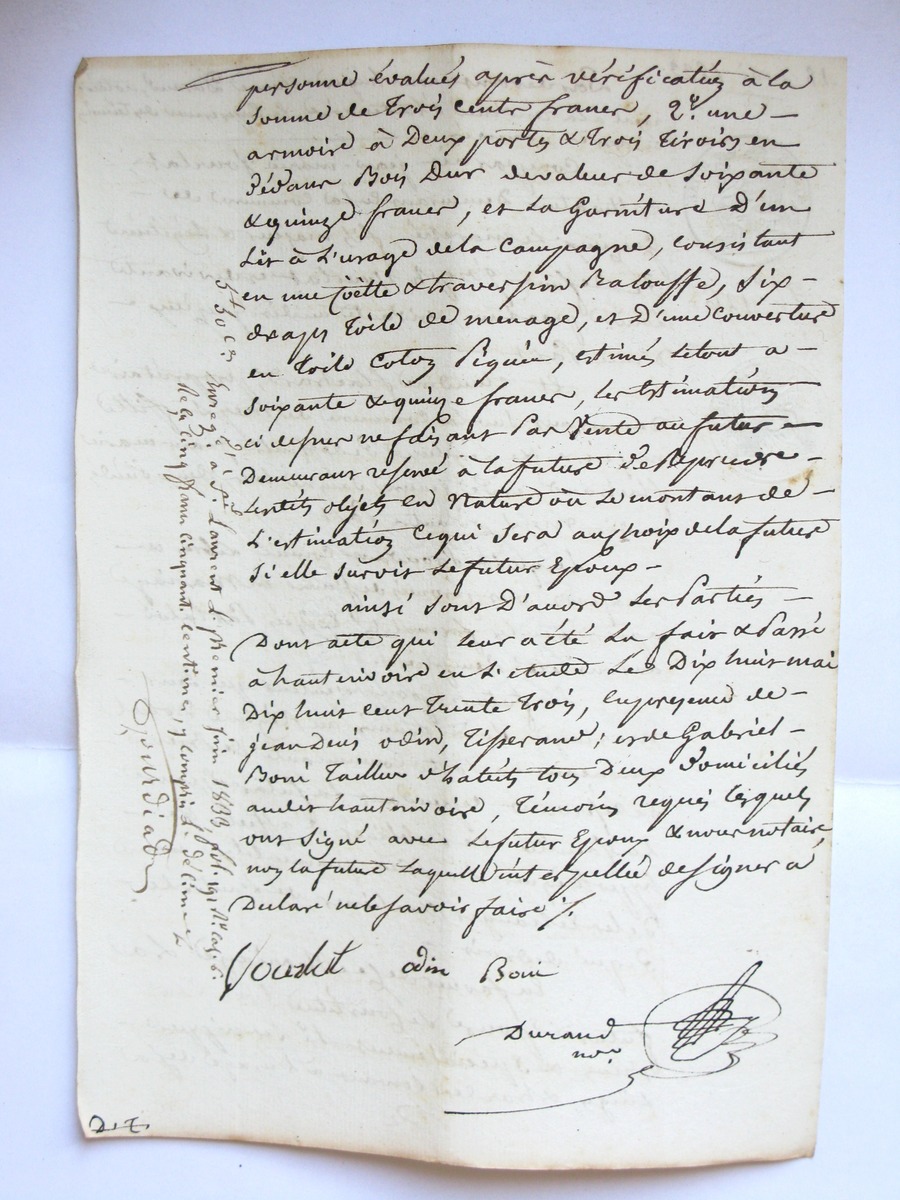 personne évalués après vérification à la
somme de trois cents francs, 2º. une
armoire à Deux portes & trois tiroirs en
Bois Dur de valeur de soixante
& quinze francs, et la Garniture D'un
Lit à L'usage de la Campagne, consistant
en une coëtte & traversin Balouffe, six
draps toile de menage, et D'une Couverture
en toile Coton Piquée, estimés letout a
soixante & quinze francs, les Estimations
ci dessus nefaisant Pas Vente au futur
Demeurant reservé à la future de Reprendre
Lesdits objets en Nature ou Le montant de
L'estimation Cequi sera au choix dela future
si elle survit Le futur Epoux
ainsi sont D'accord Les Parties
Dont acte qui leur a été Lu fait & Passé
à hauterivoire en L'etude Le Dix huit mai
Dix huit cent Trente Trois, en presence de
jean Denis odin, Tisserand, et de Gabriel
Boni Tailleur d'habits tous Deux domiciliés
audit hauterivoire, Témoins requis lesquels
ont signé avec Le futur Epoux & nous notaire,
non la future Laquelle interpellée de signer a
Declaré ne le savoir faire ./.
odin Boni
Durand
nore
5f 50 cs
Enregé à St Laurent Le Premier juin 1833 fol. 191 Ro cas. 6.
Reçu cinq francs cinquante centimes, y compris Le décime
D. T.